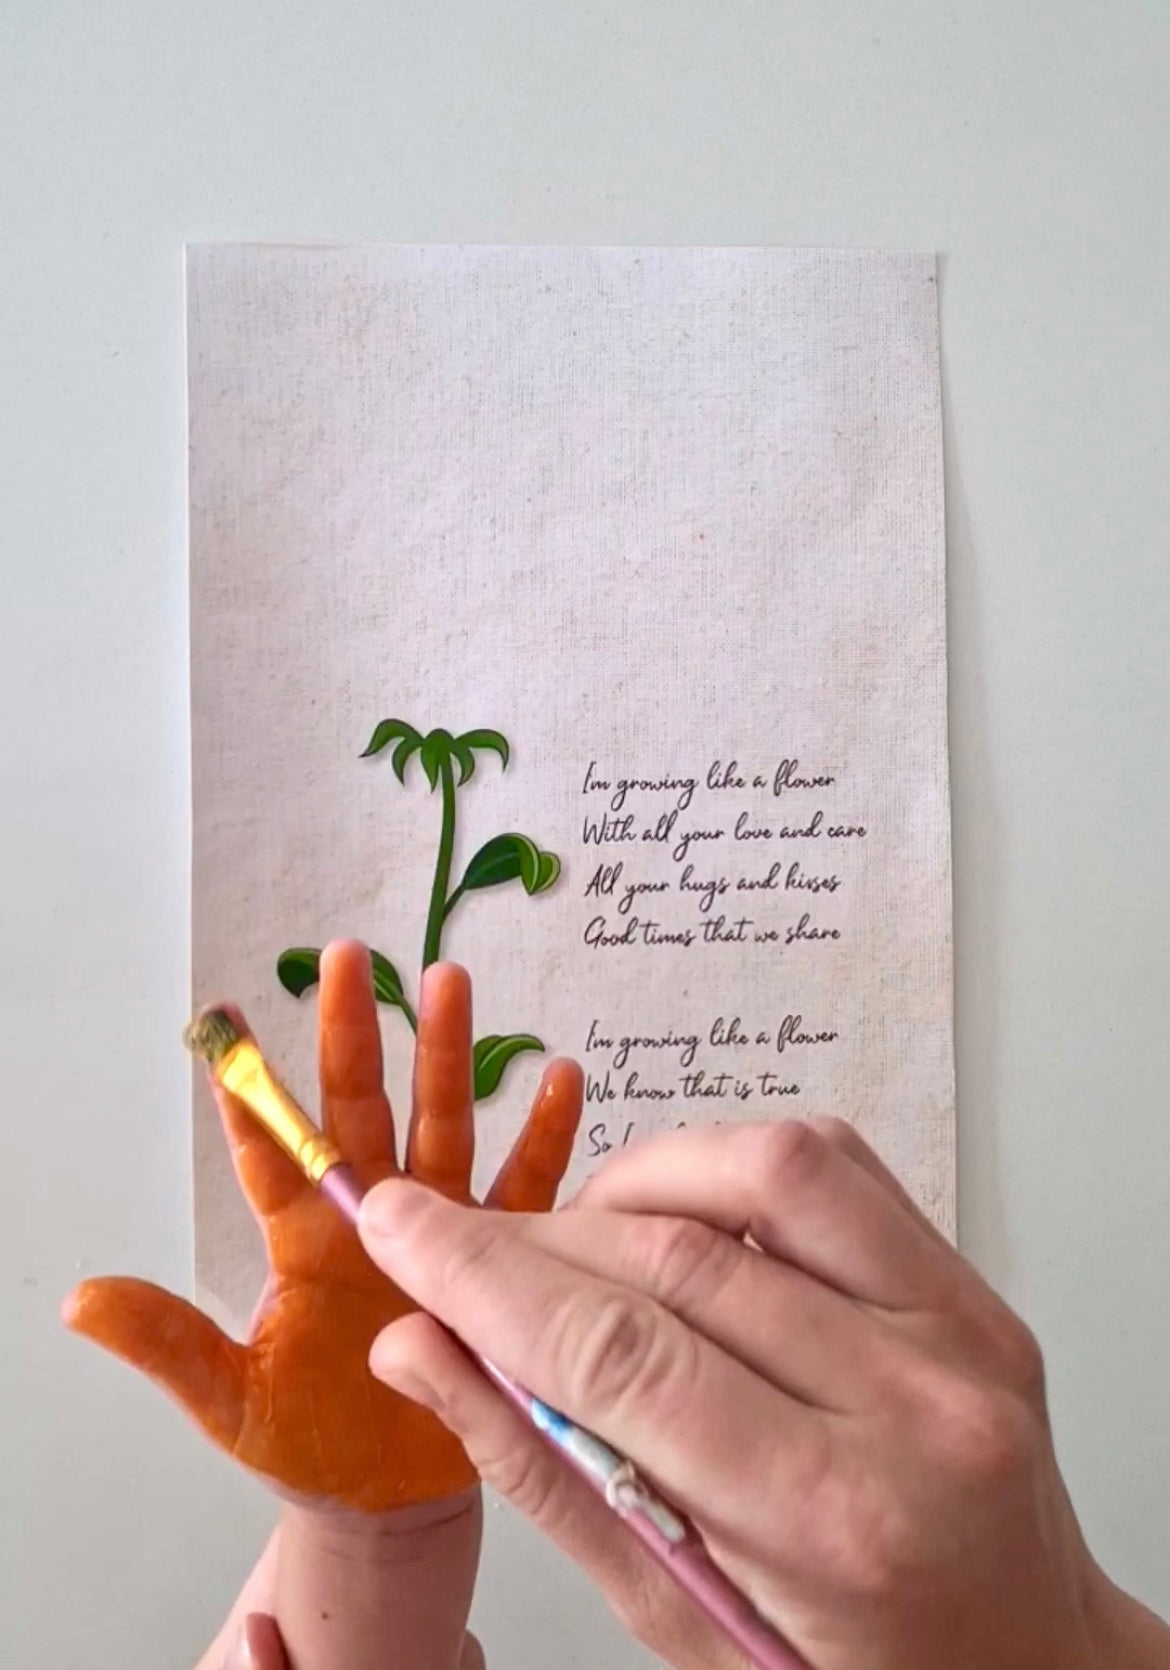 I'm growing like a flower
With all your love and care
All your hugs and kisses
Good times that we share
I'm growing like a flower
We know that is true
So I